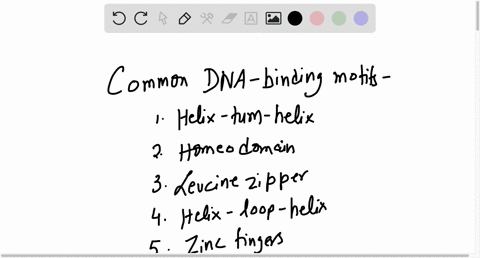 Common DNA-binding motifs-
1. Helix-turn-helix
2. Homeodomain
3. Leucine zipper
4. Helix-loop-helix
5. Zinc fingers